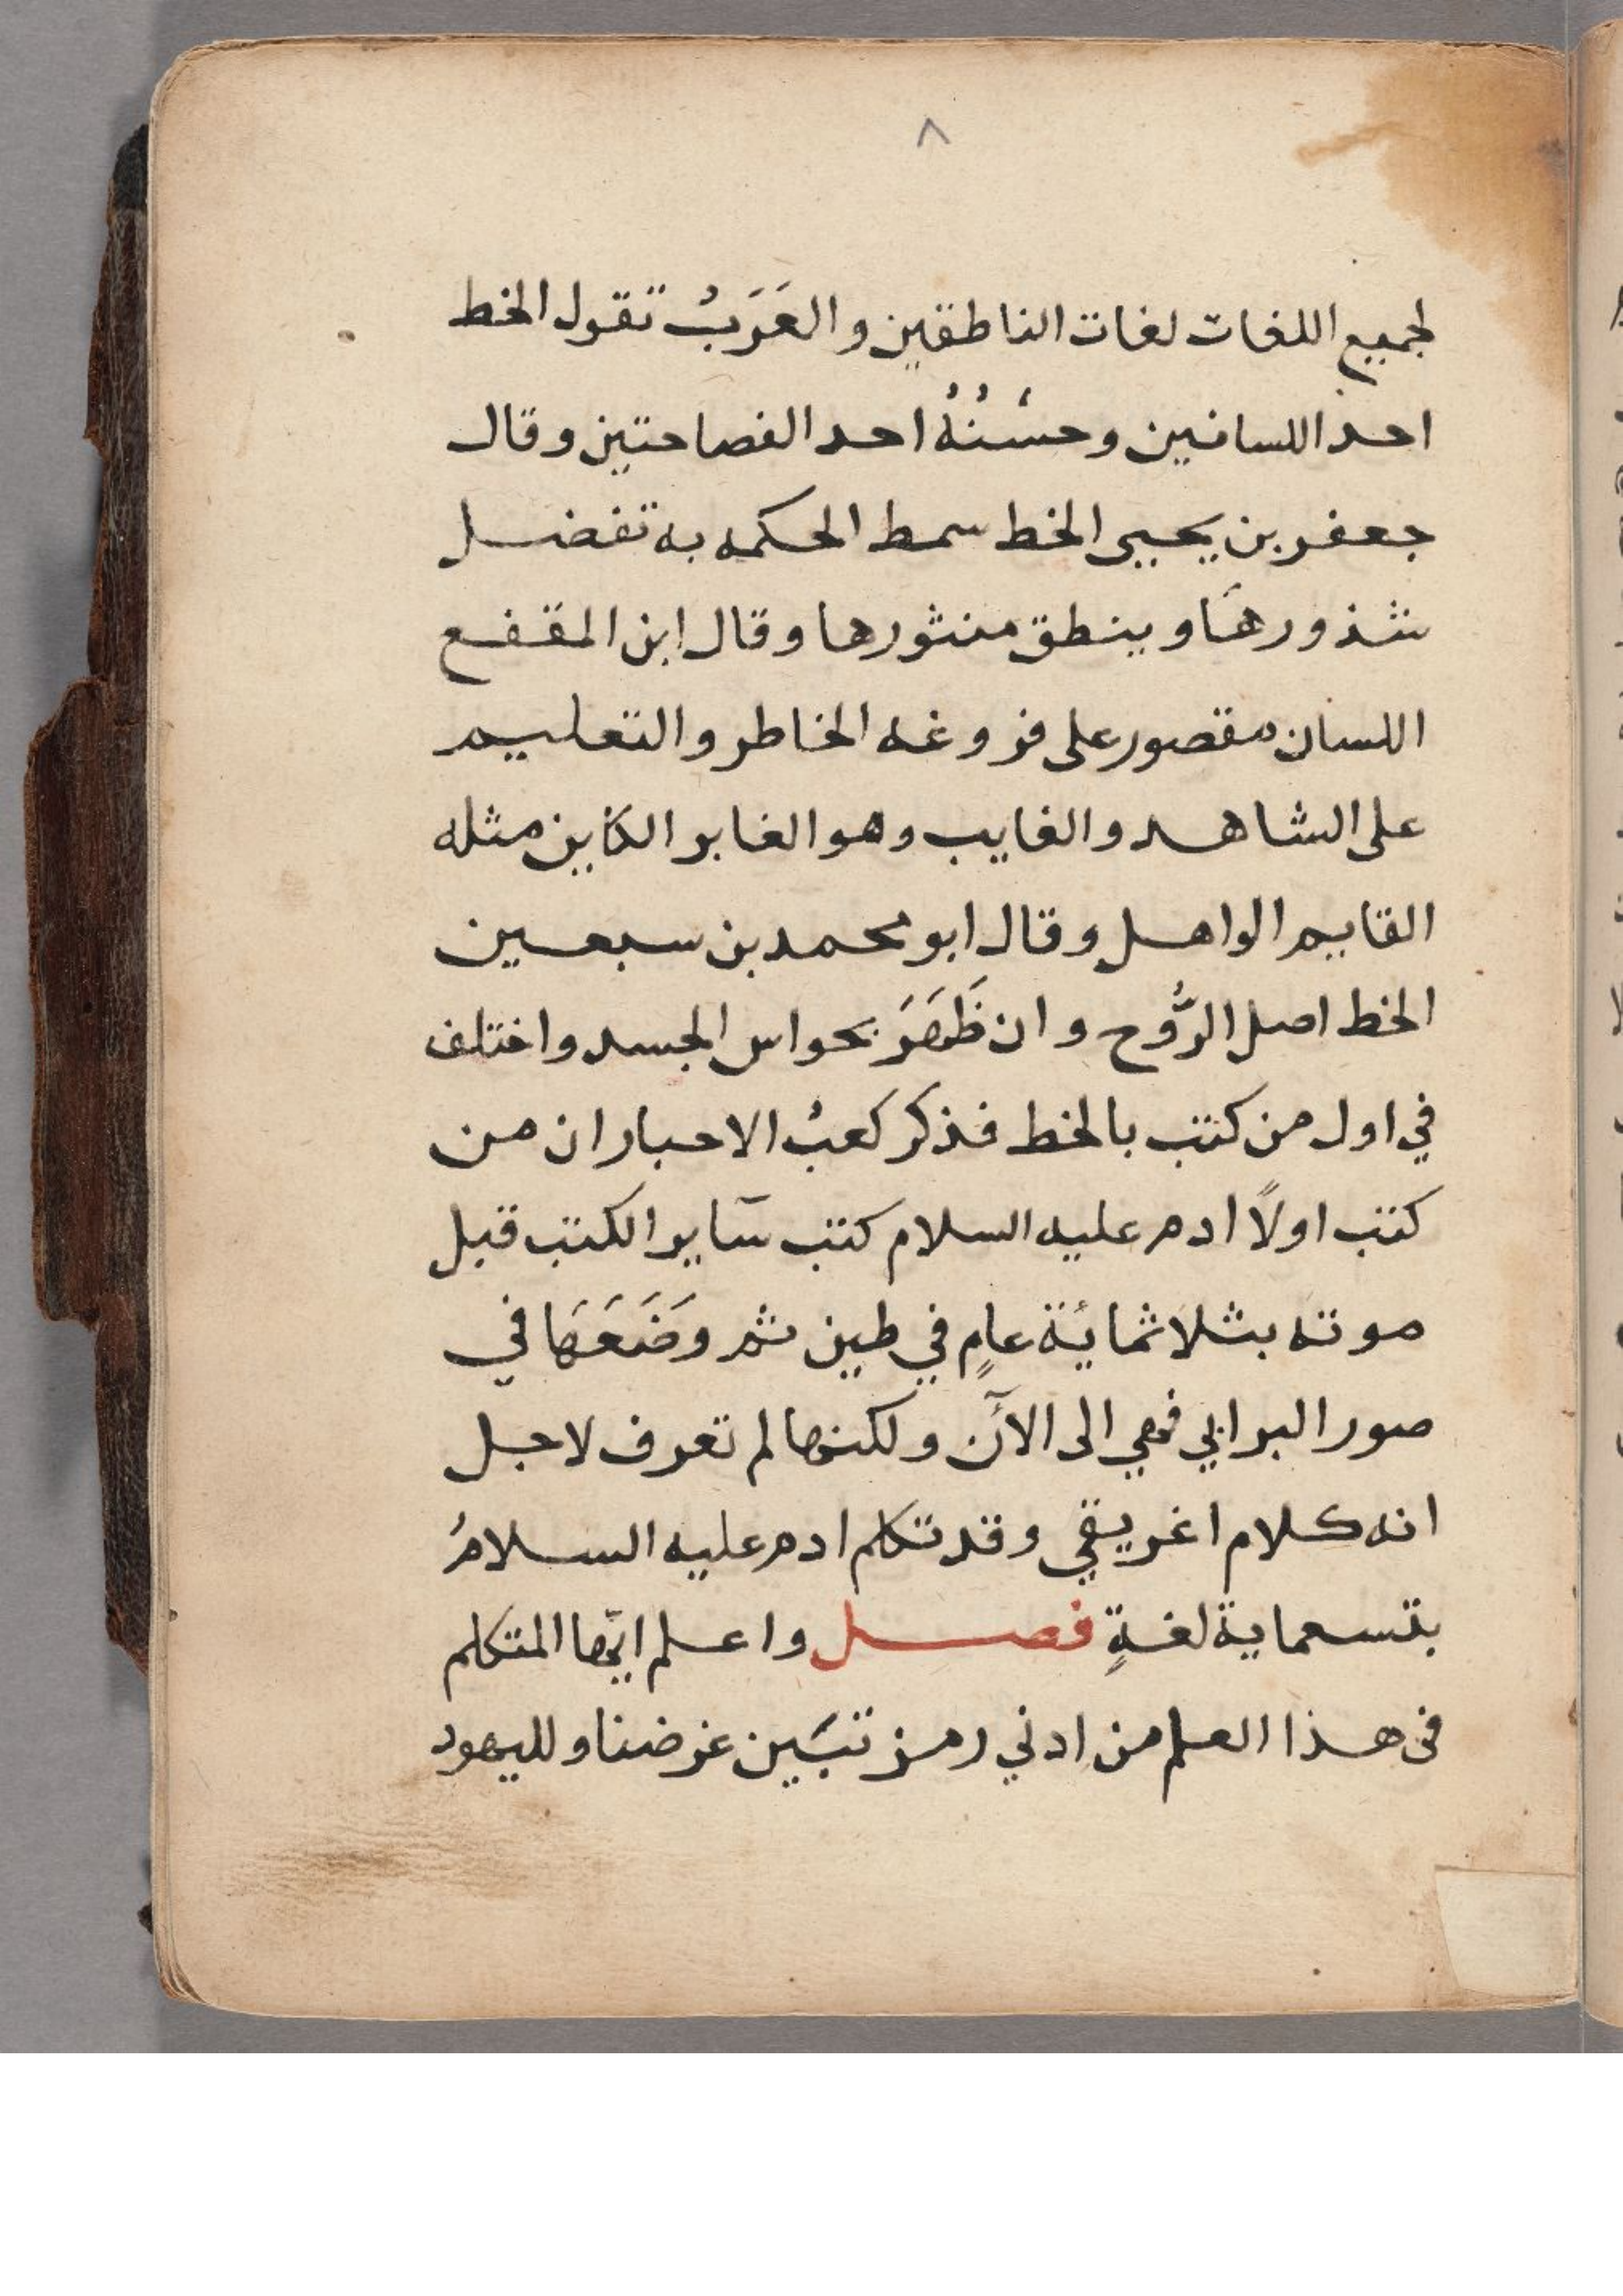 ٨
لجميع اللغات لغات الناطقين والعَرَبُ تقول الخط
احد اللسانين وحسْنُهُ احد الفصاحتين وقال
جعفر بن يحيى الخط سمط الحكمه به تفضل
شذورها وينطق منثورها وقال ابن المقفع
اللسان مقصور على الخاطر والتعليم
على الشاهد والغايب وهو الغابر الكاين مثله
القايم الواهل وقال ابو محمد بن سبعين
الخط اصل الرُّوح وان ظَهَرَ بحواس الجسد واختلف
في اول من كتب بالخط فذكر كعبُ الاحبار ان من
كتب اولاً ادم عليه السلام كتب سآير الكتب قبل
موته بثلاثمائة عامٍ في طين ثم وَضَعَهَا في
صور البرابي فهي الى الآن ولكنها لم تعرف لاجل
انه كلام اغريقي وقد تكلم ادم عليه السلامُ
بتسعماية لغةٍ فصل واعلم ايّها المتكلم
فى هذا العلم من ادني رمز تبَين غرضنا ولليهود